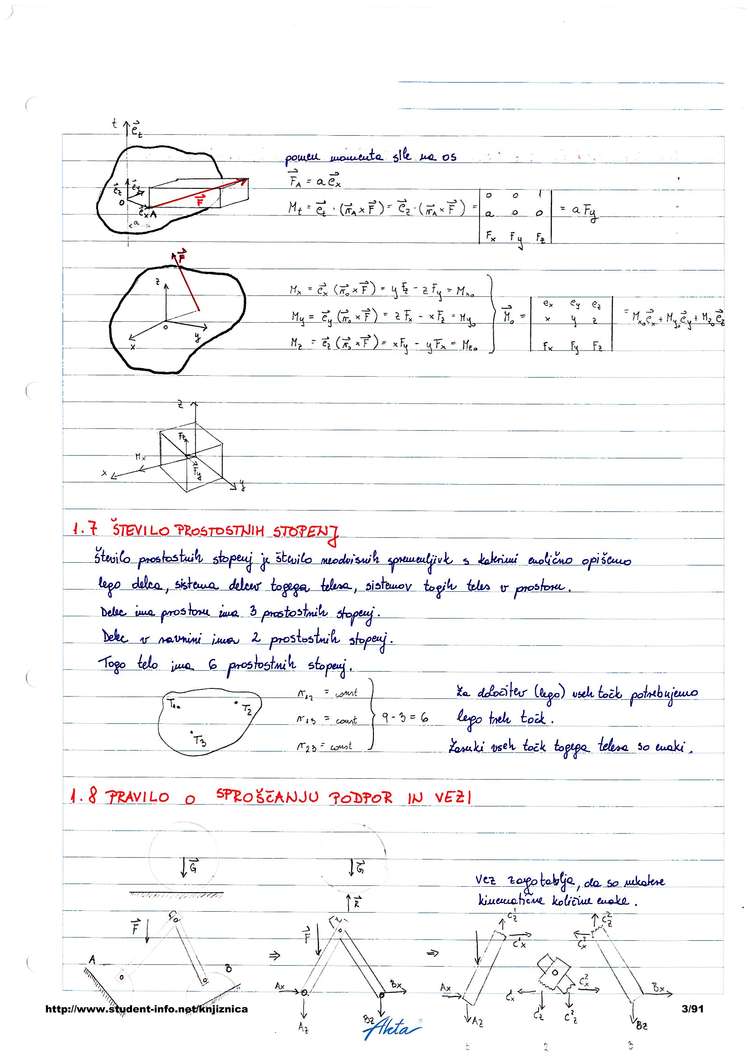 t
e⃗t
pomen momenta sile na os
F⃗A = a e⃗x
Mt = e⃗t · (r⃗A × F⃗) = e⃗z · (r⃗A × F⃗) = | 0 0 1 | a 0 0 | Fx Fy Fz | = a Fy
Mx = e⃗x (r⃗o × F⃗) = y Fz - z Fy = Mxo
My = e⃗y (r⃗o × F⃗) = z Fx - x Fz = Myo
Mz = e⃗z (r⃗o × F⃗) = x Fy - y Fx = Mzo
M⃗o = | ex ey ez | x y z | Fx Fy Fz | = Mxo e⃗x + Myo e⃗y + Mzo e⃗z
z
Fz
Mx
Fy
x
y
1.7 ŠTEVILO PROSTOSTNIH STOPENJ
Število prostostnih stopenj je število neodvisnih spremenljivk s katerimi enolično opišemo
lego delca, sistema delcev togega telesa, sistemov togih teles v prostoru.
Delec ima prostoru ima 3 prostostnih stopenj.
Delec v ravnini ima 2 prostostnih stopenj.
Togo telo ima 6 prostostnih stopenj.
T1 T2 T3
r12 = const
r13 = const
r23 = const
9 - 3 = 6
Za določitev (lego) vseh točk potrebujemo
lego treh točk.
Zasuki vseh točk togega telesa so enaki.
1.8 PRAVILO O SPROŠČANJU PODPOR IN VEZI
G⃗
G⃗
R⃗
Vez zagotavlja, da so nekatere
kinematične količine enake.
A F⃗ B
⇒
F⃗ Ax Az Bx Bz
⇒
Ax Az Cx¹ Cz¹
Cx¹ Cz¹ Cz² Cx²
Cx² Cz² Bx Bz
1 2 3
http://www.student-info.net/knjiznica
Ahta
3/91